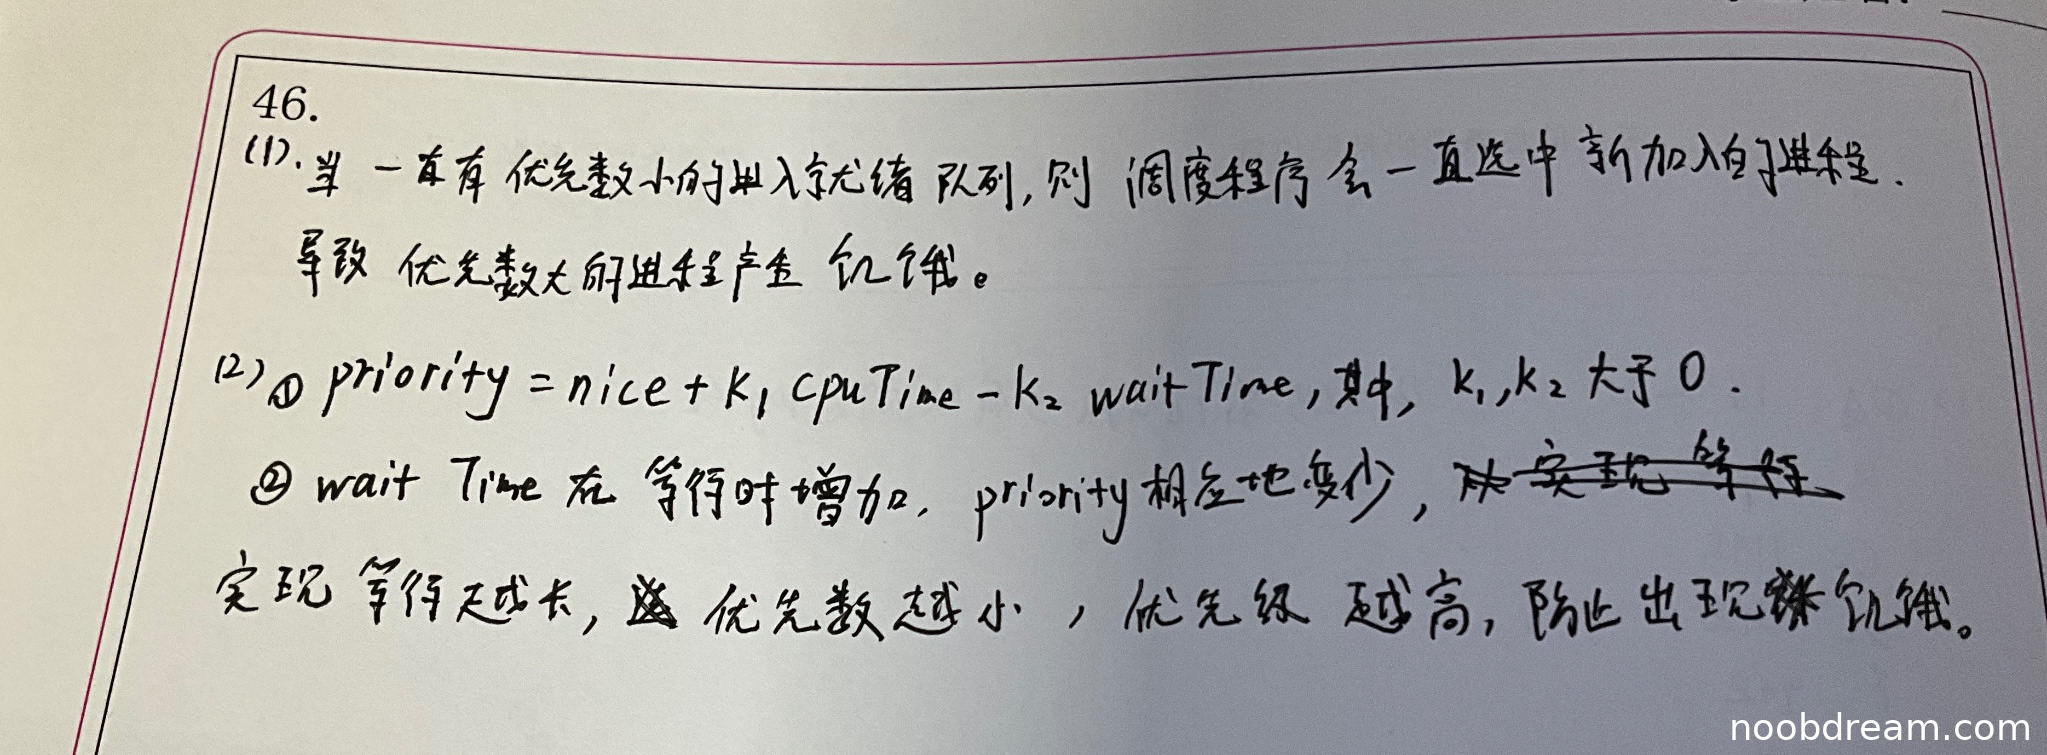 46.
(1). 当一直有优先数小的进入就绪队列, 则调度程序会一直选中新加入的进程.
导致优先数大的进程产生饥饿。
(2) ① priority = nice + k₁ cpuTime - k₂ waitTime, 其中, k₁, k₂ 大于 0.
② wait Time 在等待时增加, priority 相应地变少,
实现等待越长, 优先数越小, 优先级越高, 防止出现饥饿。
noobdream.com